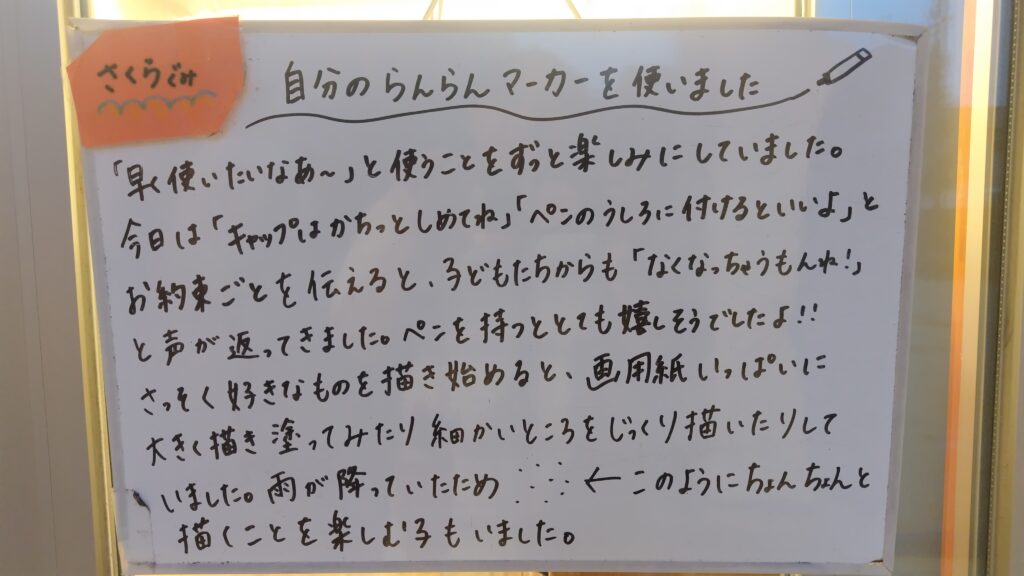 さくらぐみ
自分のらんらんマーカーを使いました
「早く使いたいなあ～」と使うことをずっと楽しみにしていました。
今日は「キャップはかちっとしめてね」「ペンのうしろに付けるといいよ」と
お約束ごとを伝えると、子どもたちからも「なくなっちゃうもんね!」
と声が返ってきました。ペンを持つととても嬉しそうでしたよ!!
さっそく好きなものを描き始めると、画用紙いっぱいに
大きく描き塗ってみたり細かいところをじっくり描いたりして
いました。雨が降っていたため ← このようにちょんちょんと
描くことを楽しむ子もいました。